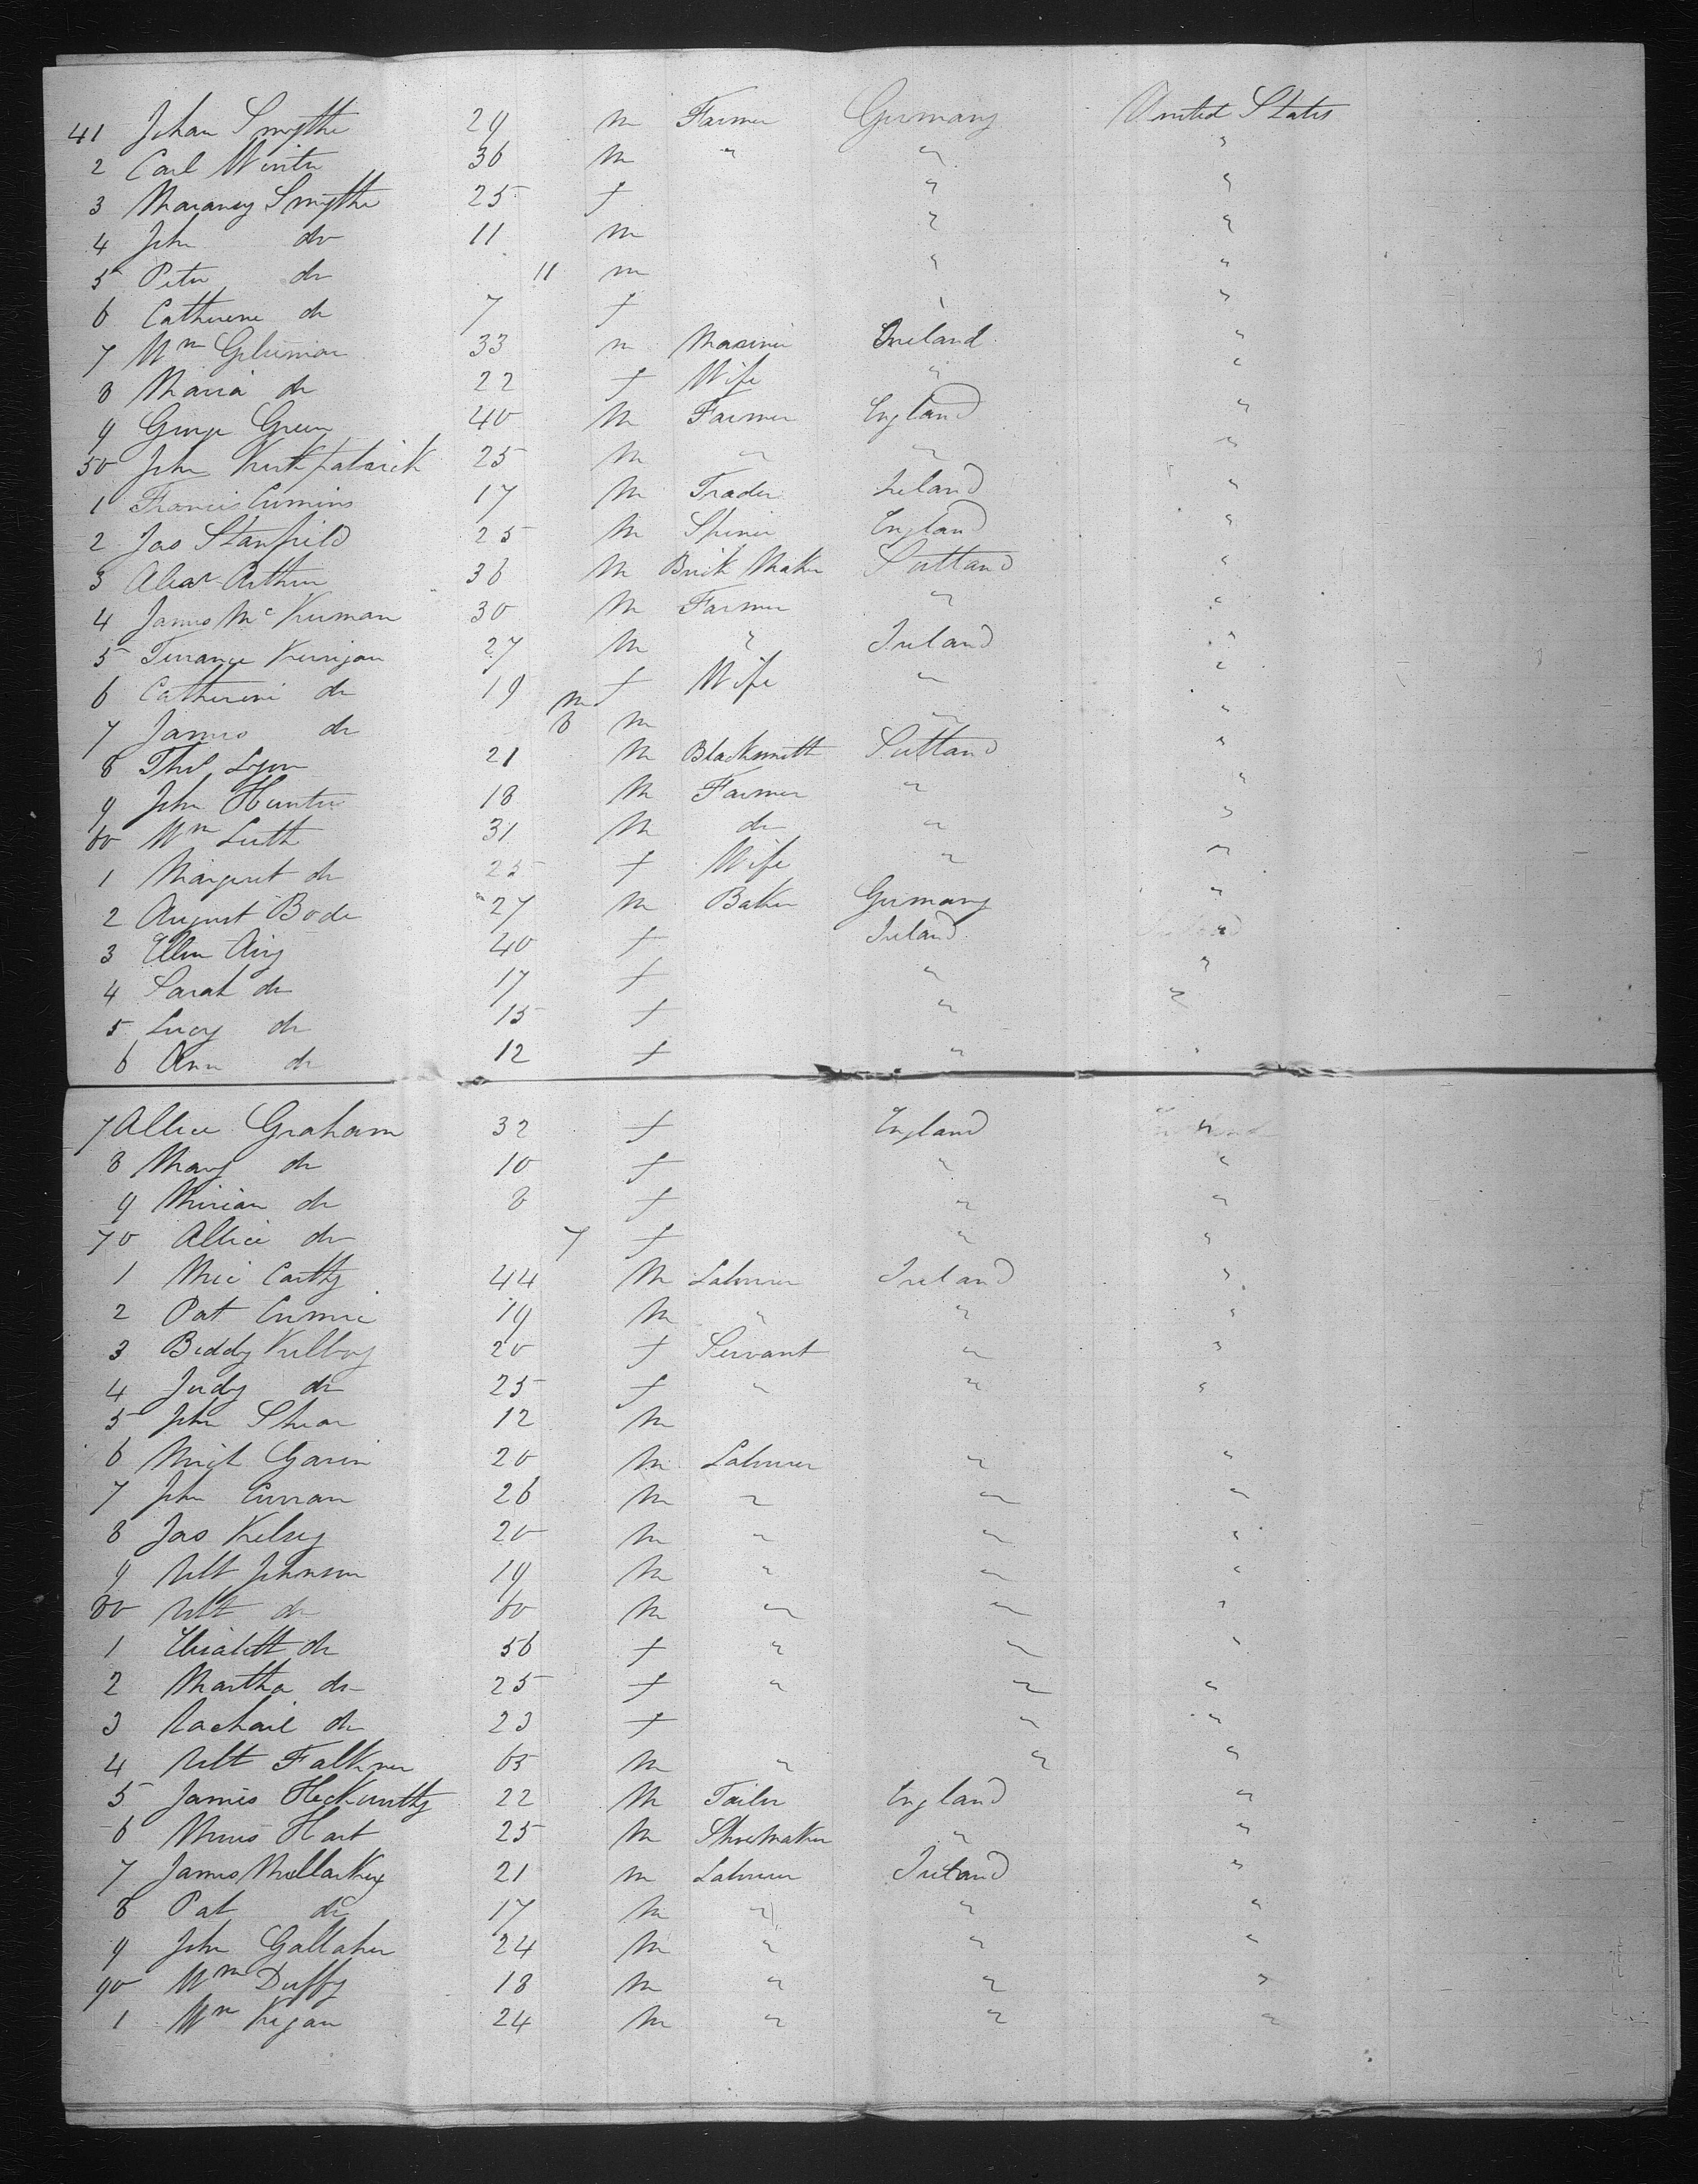 41 Johan Smythe 29 m Farmer Germany United States
2 Carl Winter 36 m " " "
3 Smythe 25 f " "
4 John do 11 m " "
5 Peter do 11 m " "
6 Catherine do 7 f " "
7 Wm 33 m Mariner Ireland "
8 Maria do 22 f Wife " "
9 George Green 40 m Farmer England "
50 John Kirkpatrick 25 m " " "
1 Francis Cumins 17 m Trader Ireland "
2 Jas Stanfield 25 m Spiner England "
3 Alexr Arthur 36 m Brick Maker Scotland "
4 James McKiernan 30 m Farmer " "
5 Terrance Kerrigan 27 m " Ireland "
6 Catherine do 19 f Wife " "
7 James do m 6 m " "
8 Thos Lyon 21 m Blacksmith Scotland "
9 John Hunter 18 m Farmer " "
60 Wm Leith 31 m do " "
1 Margaret do 25 f Wife " "
2 August Bode 27 m Baker Germany "
3 Ellen Airy 40 f Ireland "
4 Sarah do 17 f " "
5 Lucy do 15 f " "
6 Ann do 12 f " "
7 Allice Graham 32 f England "
8 Mary do 10 f " "
9 Mirian do 8 f " "
70 Allice do 7 f " "
1 Mic Carthy 44 m Labourer Ireland "
2 Pat 19 m " " "
3 Biddy Kilboy 20 f Servant " "
4 Judy do 25 f " " "
5 John Shear 12 m
6 Mich Gavin 20 m Labourer " "
7 John Curran 26 m " " "
8 Jas Kelsey 20 m " " "
9 Robt Johnson 19 m " " "
80 Robt do 60 m " " "
1 Elizabeth do 56 f " " "
2 Martha do 25 f " " "
3 Rachail do 23 f " "
4 Robt Falkner 65 m " " "
5 James 22 m Tailor England "
6 Hart 25 m Shoemaker " "
7 James Mullarkey 21 m Labourer Ireland "
8 Pat do 17 m " " "
9 John Gallaher 24 m " " "
90 Wm Duffy 18 m " " "
1 Wm Kegan 24 m " " "